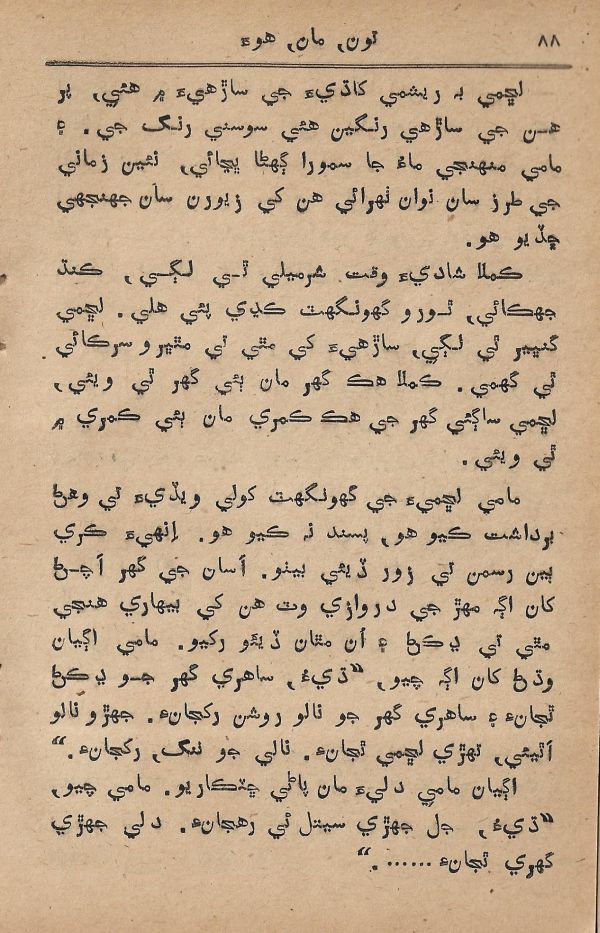 تون، مان، هوءَ ۸۸
لڇمي بہ ريشمي کاڌيءَ جي ساڙهيءَ ۾ هئي، پر
هن جي ساڙهي رنگين هئي سوسني رنگ جي. ۽
مامي منهنجي ماءُ جا سمورا ڳهڻا ڀڃائي، نئين زماني
جي طرز سان نوان ٺهرائي هن کي زيورن سان جهنجهي
ڇڏيو هو.
ڪملا شاديءَ وقت شرميلي ٿي لڳي، ڪنڌ
جهڪائي، ٿورو گهونگهٽ ڪڍي پئي هلي. لڇمي
گنڀير ٿي لڳي، ساڙهيءَ کي مٿي تي مٿڀرو سرڪائي
ٿي گهمي. ڪملا هڪ گهر مان ٻئي گهر ٿي ويئي،
لڇمي ساڳئي گهر جي هڪ ڪمري مان ٻئي ڪمري ۾
ٿي ويئي.
مامي لڇميءَ جي گهونگهٽ کولي ويڏيءَ تي وهڻ
برداشت ڪيو هو، پسند نہ ڪيو هو. انهيءَ ڪري
ٻين رسمن تي زور ڏيئي بيٺو. اسان جي گهر اچڻ
کان اڳ مهڙ جي دروازي وٽ هن کي بيهاري هنجي
مٿي تي ڍڪڻ ۽ اُن مٿان ڏيئو رکيو. مامي اڳيان
وڌڻ کان اڳ چيو، ”ڌيءُ، ساهري گهر جو ڍڪڻ
ٿجانءِ ۽ ساهري گهر جو نالو روشن رکجانءِ. جهڙو نالو
اٿيئي، تهڙي لڇمي ٿجانءِ. نالي جو ننگ، رکجانءِ.“
اڳيان مامي دليءَ مان پاڻي ڇٽڪاريو. مامي چيو،
”ڌيءُ، جل جهڙي سيتل ٿي رهجانءِ. دلي جهڙي
گهري ٿجانءِ .......“